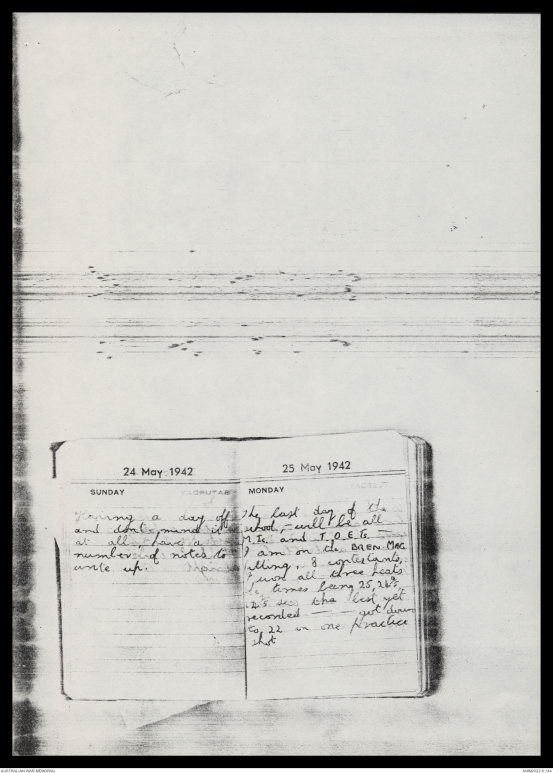 24 May 1942
SUNDAY
Having a day off
and dont mind it
at all, have a
number of notes to
write up.
25 May 1942
MONDAY
The last day of the
school, - will be all
M.Is. and T.O.E.Ts.
I am on the BREN MAG
filling, 8 contestants,
I won all three heats
times being 25, 26
secs the best yet
recorded — got down
to 22 in one practice
shot
AUSTRALIAN WAR MEMORIAL